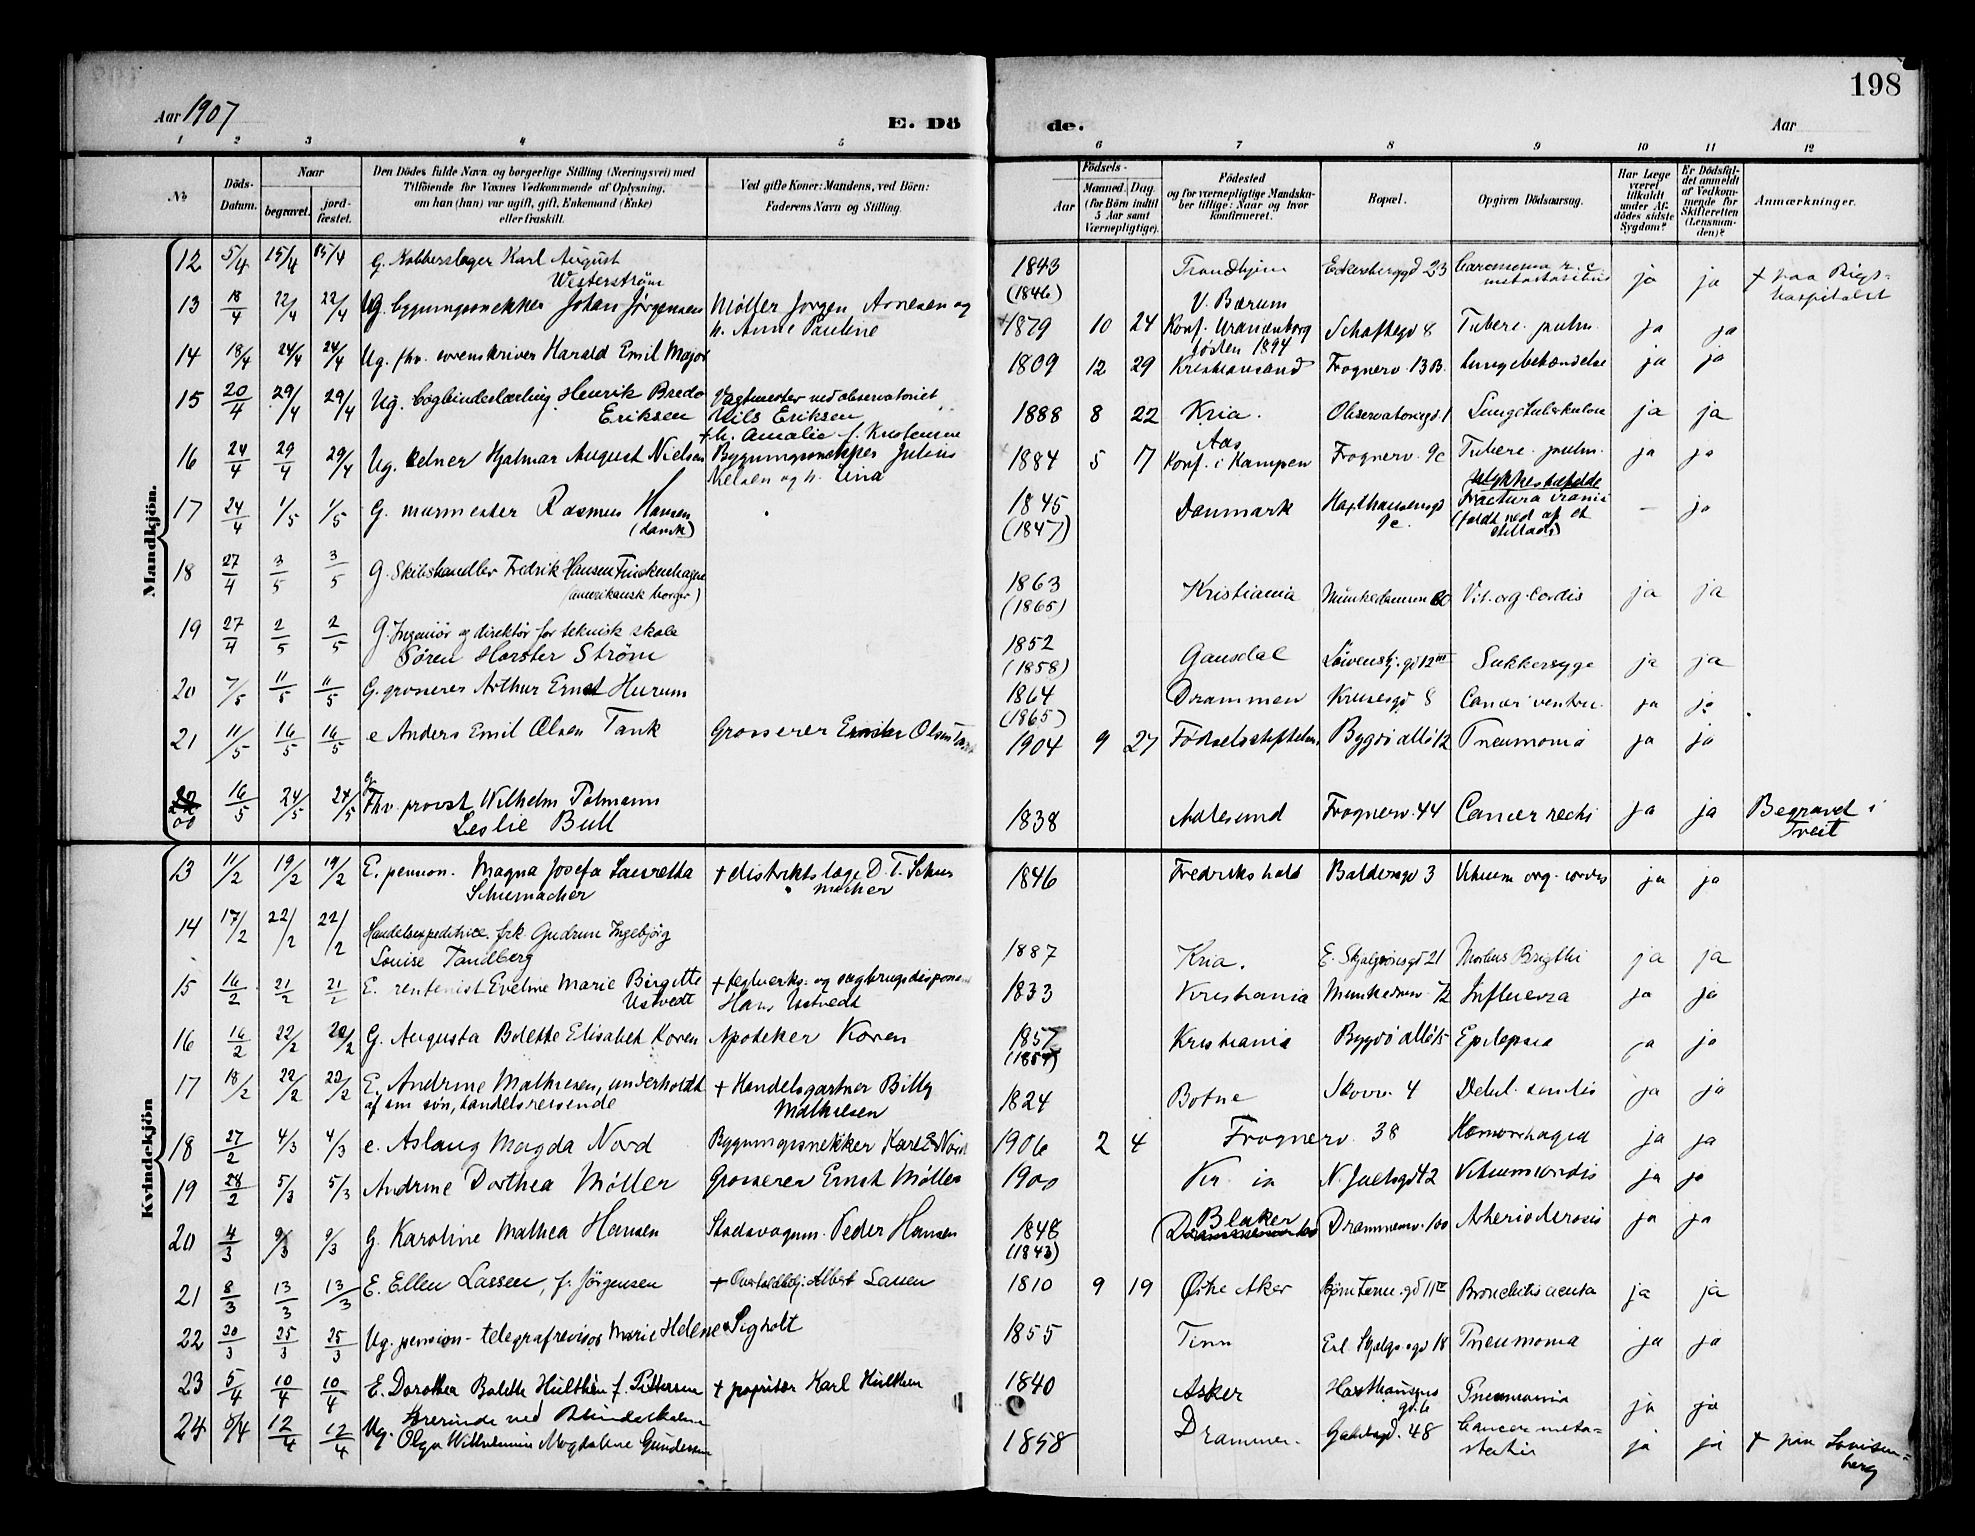 198
Aar 1907
E. Dö
de.
Aar
1 2 3 4 5 6 7 8 9 10 11 12
No.
Döds-Datum.
Naar
begravet.
jord-fæstet.
Den Dödes fulde Navn og borgerlige Stilling (Næringsvei) med
Tilföiende for Voxnes Vedkommende af Oplysning,
om han (hun) var ugift, gift, Enkemand (Enke)
eller fraskilt.
Ved gifte Koner: Mandens, ved Börn:
Faderens Navn og Stilling.
Födsels-
Aar
Maaned. Dag.
(for Börn indtil
5 Aar samt
Værnepligtige).
Födested
og for værnepligtige Mandska-
ber tillige: Naar og hvor
konfirmeret.
Bopæl.
Opgiven Dödsaarsag.
Har Læge
været
tilkaldt
under Af-
dödes sidste
Sygdom?
Er Dödsfal-
det anmeldt
af Vedkom-
mende for
Skifteretten
(Lensman-
den)?
Anmærkninger.
Mandkjön.
12 5/4 15/4 15/4 G. Kobberslager Karl August
Westerström
1843
(1846)
Trondhjem Eckersberggd 23 Carcinoma
ja ja + paa Rigs-
hospitalet
13 18/4 22/4 22/4 Ug. bygningssnekker Johan Jørgensen Møller Jørgen Arnesen og
h. Anne Pauline
1879 10 24 V. Bærum
Konf. Uranienborg
høsten 1894
Schaftegd 8 Tuberc. pulm. ja ja
14 18/4 24/4 24/4 Ug. fhv. sorenskriver Harald Emil Major
1809 12 29 Kristiansand Frognerv. 13 B. Lungebetændelse ja ja
15 20/4 29/4 29/4 Ug. bogbinderlærling Henrik Bredo
Eriksen
Vagtmester ved observatoriet
Nils Eriksen
+ h. Amalie f. Kristensen
1888 8 22 Kria. Observatoriegd. 1 Lungetuberkulose ja ja
16 24/4 29/4 29/4 Ug. kelner Hjalmar August Nielsen Bygningssnekker Julius
Nielsen og h. Lina
1884 5 17 Aas
Konf. i Kampen
Frognerv. 9c Tuberc. pulm. ja ja
17 24/4 1/5 1/5 G. murmester Rasmus Hansen
(dansk)
1845
(1847)
Danmark Haxthausensgd
9c.
Ulykkestilfælde
Fractura cranii
(faldt ned af et
stillads)
– ja
18 27/4 3/5 3/5 G. Skibshandler Fredrik Hansen Finckenhagen
(amerikansk borger)
1863
(1865)
Kristiania Munkedamsv 60 Vit. org. cordis ja ja
19 27/4 2/5 2/5 G. Ingeniør og direktør for teknisk skole
Søren Horster Strøm
1852
(1858)
Gausdal Løvenskj. gd 12 III Sukkersyge ja ja
20 7/5 11/5 11/5 G. grosserer Arthur Ernst Hurum
1864
(1865)
Drammen Krusesgd 8 Cancer ventric. ja ja
21 11/5 16/5 16/5 e Anders Emil Olsen Tank Grosserer Olsen Tank
1904 9 27 Fødselsstiftelsen Bygdø allé 12 Pneumonia ja ja
22 16/5 24/5 24/5 G. Fhv. provst Wilhelm Polmann
Leslie Bull
1838 Aalesund Frognerv. 44 Cancer recti ja ja Begravd i
Tveit
Kvindekjön
13 11/2 19/2 19/2 E. pension. Magna Josefa Lauretta
Schumacher
+ distriktslæge D. T. Schu
macher
1846 Fredrikshald Baldersgd 3 Vitium org. cordis ja ja
14 17/2 22/2 22/2 Handelsexpeditrice frk. Gudrun Ingebjørg
Louise Tandberg
1887 Kria. E. Skjalgsönsgd 21 Morbus Brigthi ja ja
15 16/2 21/2 21/2 E. rentenist Eveline Marie Birgitte
Ustvedt
+ teglverks- og sagbrugsdisponent
Hans Ustvedt
1833 Kristiania Munkedamsv. 72 Influenza ja ja
16 16/2 22/2 22/2 G. Augusta Bolette Elisabet Koren Apoteker Koren
1857
(1857)
Kristiania Bygdö allé 15 Epilepsia ja ja
17 18/2 22/2 22/2 E. Andrine Mathiesen, underholdt
af sin søn, handelsreisende
+ Handelsgartner Billy
Mathiesen
1824 Botne Skovv. 4 Debil. senilis ja ja
18 27/2 4/3 4/3 e. Aslaug Magda Nord Bygningssnekker Karl E. Nord
1906 2 4 Frognerv. 38 Hæmorrhagia ja ja
19 28/2 5/3 5/3 Andrine Dorthea Møller Grosserer Ernst Møller
1900 Kr. ia N. Juelsgd 42 Vitium cordis ja ja
20 4/3 9/3 9/3 G. Karoline Mathea Hansen Stadsvognm. Peder Hansen
1848
(1843)
Blaker
Drammensv. 100 Atheriosclerosis ja ja
21 8/3 13/3 13/3 E. Ellen Lassen, f. Jørgensen + Overtoldbetj. Albert Lassen
1810 9 19 Østre Aker Bjørn Farmansgd 11 IV Bronchitis acuta ja ja
22 20/3 25/3 25/3 Ug. pension. telegrafrevisor Marie Helene Sigholt
1855 Tinn Erl. Skjalgs.sgd 18 Pneumonia ja ja
23 5/4 10/4 10/4 E. Dorothea Bolette Hulthén f. Pettersen + proprietær Karl Hulthen
1840 Asker Haxthausens
gd. 6
Pneumonia ja ja
24 8/4 12/4 12/4 Ug. Lærerinde ved Blindeskolen
Olga Wilhelmine Magdalene Gundersen
1858 Drammen. Gabelsgd. 48 Cancer meta-
ja ja + paa Lovisen-
berg